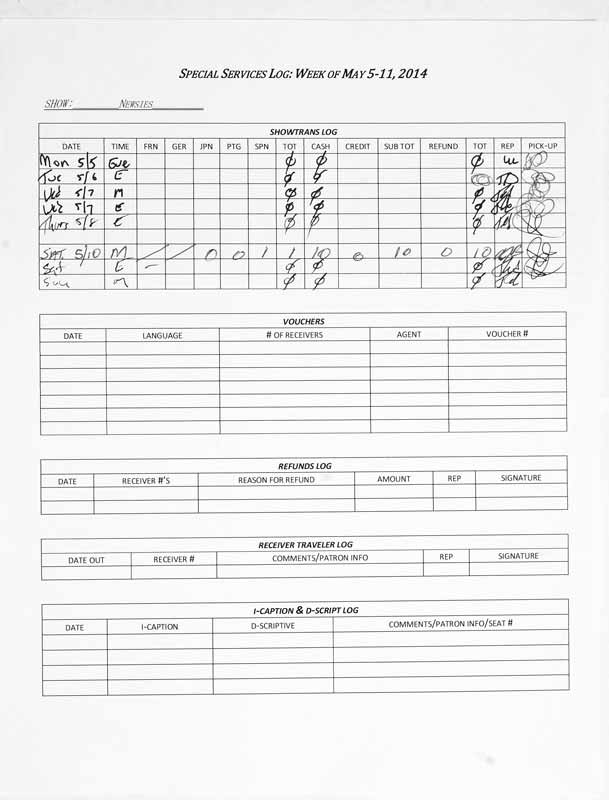 SPECIAL SERVICES LOG: WEEK OF MAY 5-11, 2014
SHOW: NEWSIES
SHOWTRANS LOG
DATE TIME FRN GER JPN PTG SPN TOT CASH CREDIT SUB TOT REFUND TOT REP PICK-UP
Mon 5/5 Eve Ø Ø Ø
Tue 5/6 E Ø Ø
Wed 5/7 M Ø Ø Ø
Wed 5/7 E Ø Ø Ø
Thurs 5/8 E Ø Ø Ø
SAT. 5/10 M / / 0 0 1 1 10 0 10 0 10
Sat E - Ø Ø Ø
Sun M Ø Ø Ø
VOUCHERS
DATE LANGUAGE # OF RECEIVERS AGENT VOUCHER #
REFUNDS LOG
DATE RECEIVER #'S REASON FOR REFUND AMOUNT REP SIGNATURE
RECEIVER TRAVELER LOG
DATE OUT RECEIVER # COMMENTS/PATRON INFO REP SIGNATURE
I-CAPTION & D-SCRIPT LOG
DATE I-CAPTION D-SCRIPTIVE COMMENTS/PATRON INFO/SEAT #